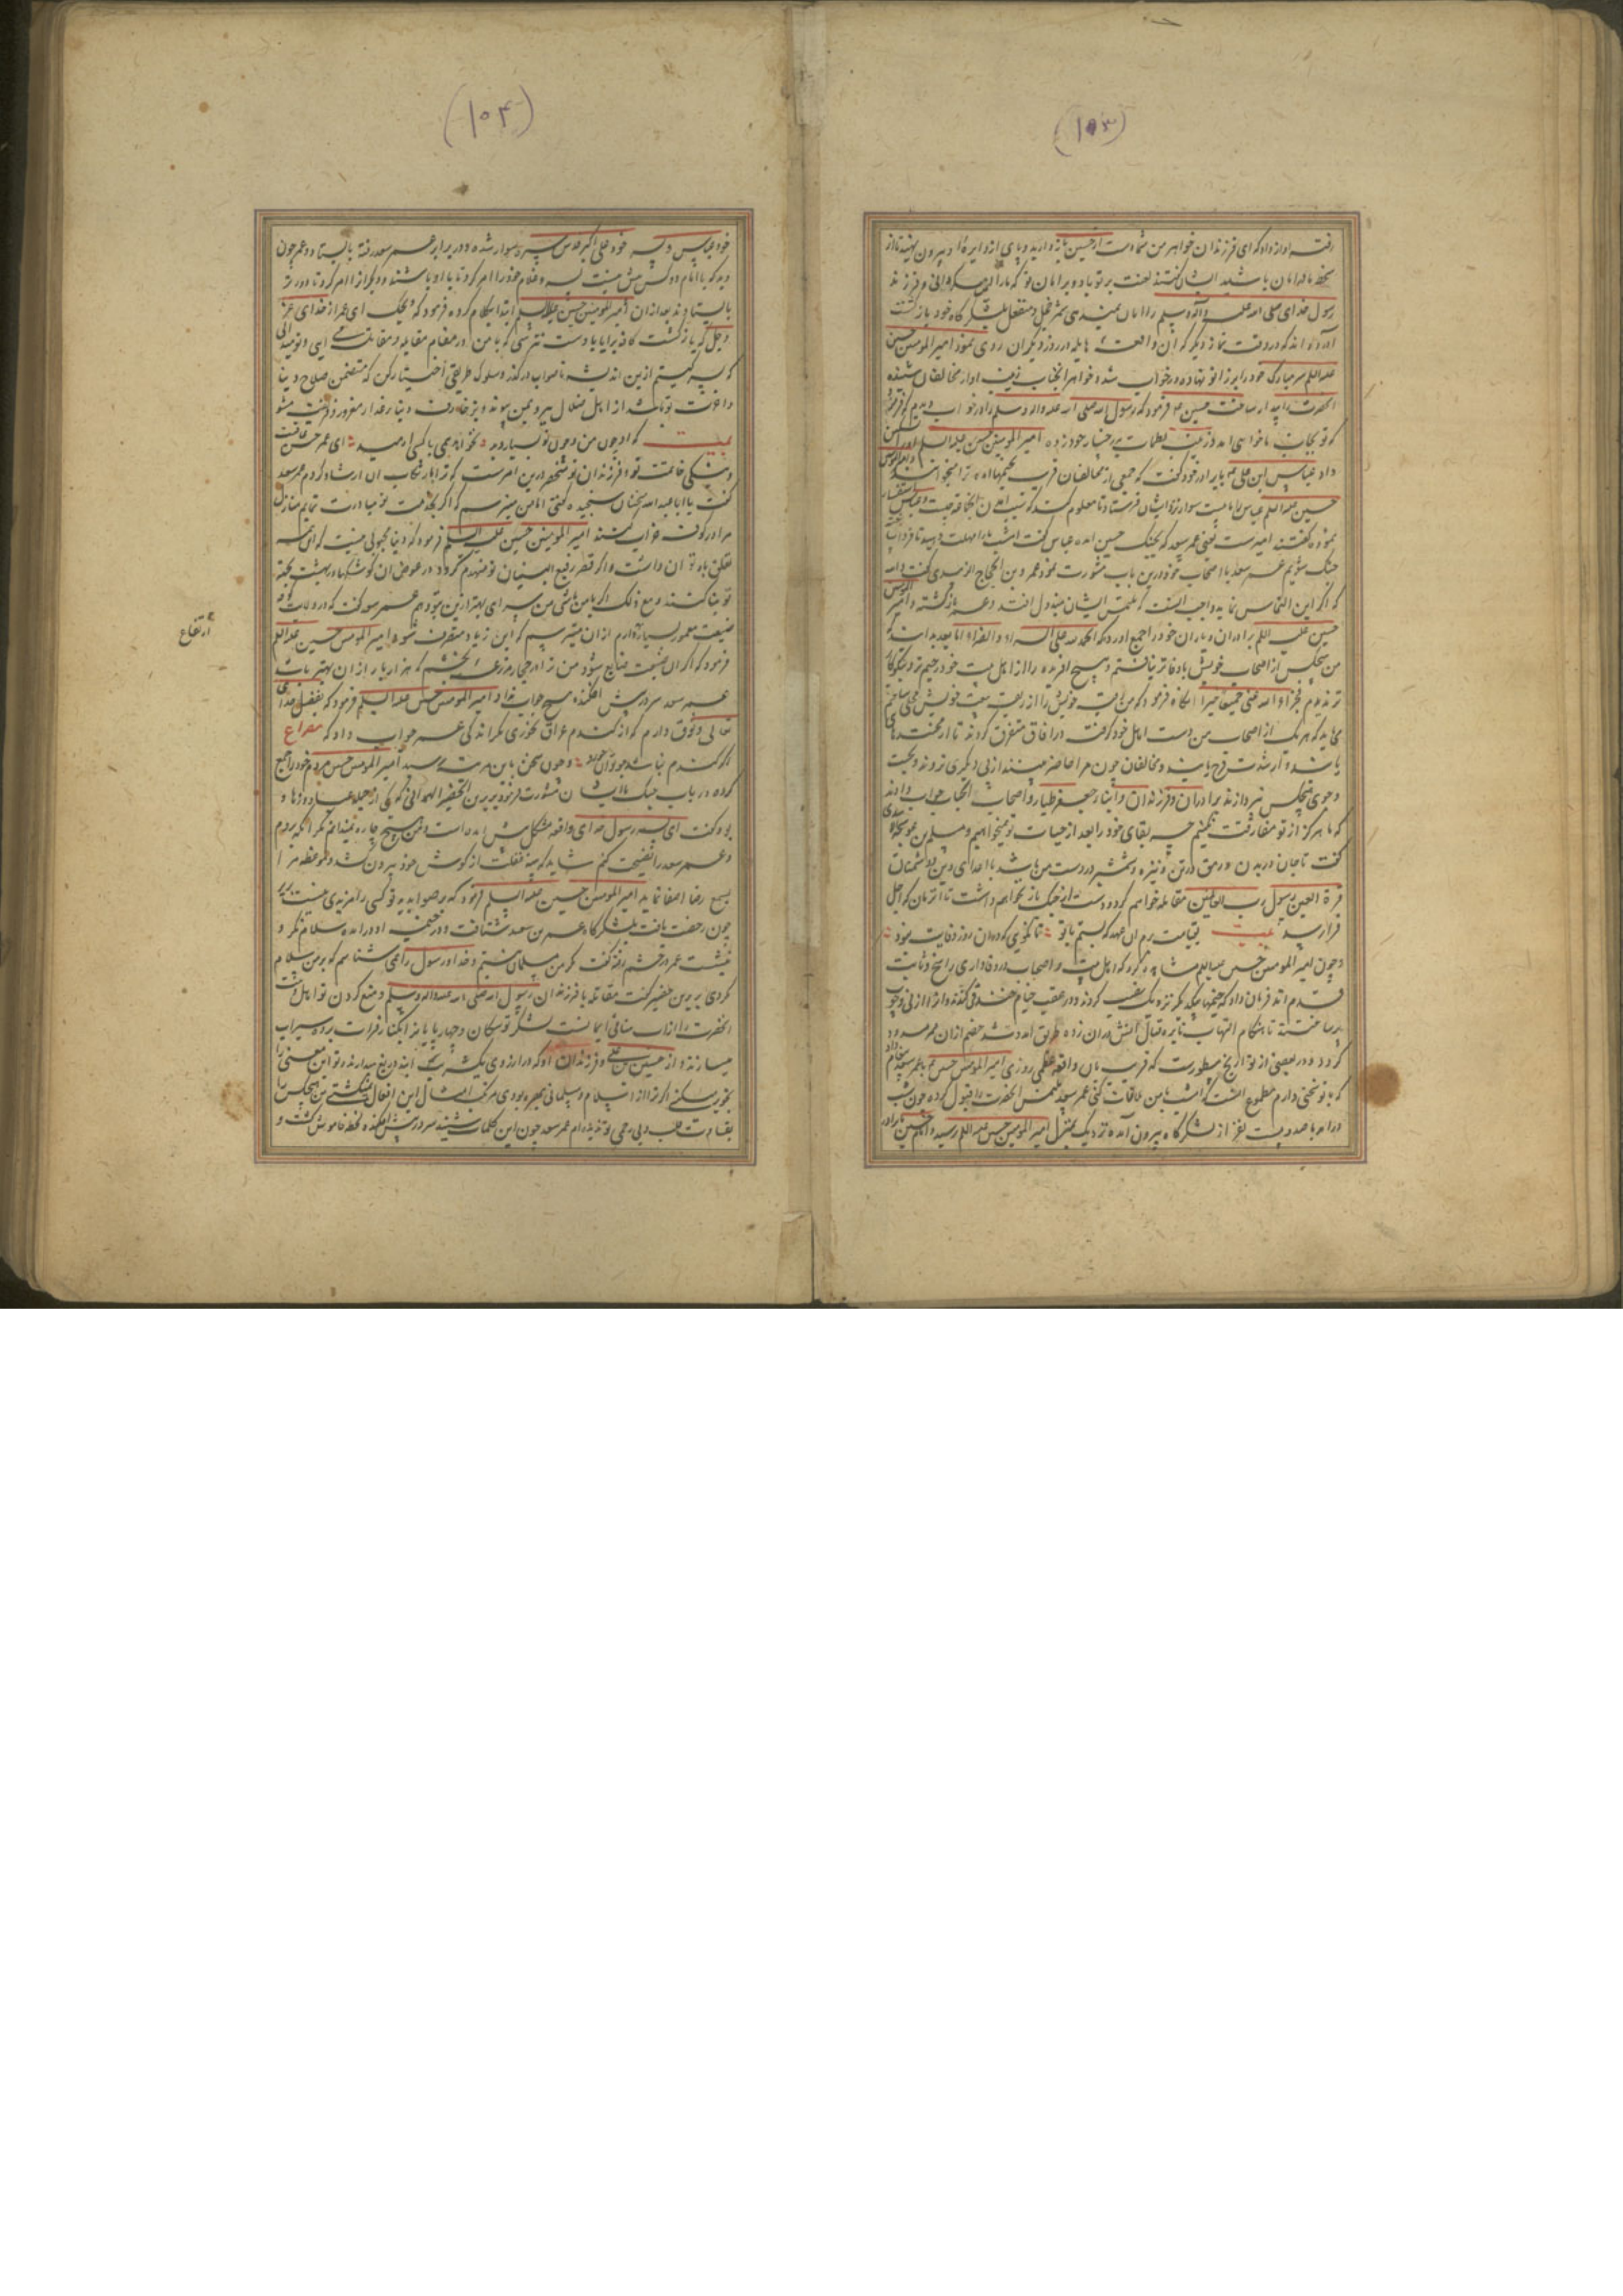 (۱۰۳)
رفته اواز داد که ای فرزندان خواهر من شما دست از حسین باز دارید و پای ازو دایره او بیرون نهید تا از
سخط ما در امان باشید ایشان گفتند لعنت بر تو باد و بر امان تو که ما را امان و فرزند
رسول خدای صلی الله علیه وآله وسلم را امان نمیدهی شمر خجل و منفعل بلشکرگاه خود بازگشت
آورده اند که در وقت نماز دیگر که آن واقعه هایله در روز دیگر ان روی نمود امیر المؤمنین حسین
علیه السلام سر مبارک خود را بر زانو نهاده در خواب شد و خواهر انجناب زینب اواز مخالفان شنیده
انحضرت را بیدار ساخت حسین فرمود که رسول الله صلی الله علیه واله وسلم را در خواب دیدم که فرمود
که تو بجانب ما خواهی امد زینب لطمات بر رخسار خود زده امیر المؤمنین حسین علیه السلام
داد عباس ابن علی با برادر خود گفت که جمعی از مخالفان قریب بخیمها امده
حسین علیه السلام عباس را با بیست سوار نزد ایشان فرستاد تا معلوم کند که
نموده گفتند امیر ست یعنی عمر سعد که بجنگ حسین امده عباس گفت امشب ما را مهلت دهید تا فردا
جنگ شویم عمر سعد با اصحاب خود درین باب مشورت نمود عمرو بن الحجاج الزبیدی گفت والله
که اگر این التماس نماید واجب است که ملتمس ایشان مبذول افتد و عمر بازگشته و امیر المؤمنین
حسین علیه السلام برادران و یاران خود را جمع اورد که الحمد لله علی السراء والضراء اما بعد بدانید که
من هیچکس از اصحاب خویش باوفاتر نیافتم و هیچ افریده را از اهل بیت خود رحیم تر و نیکوکار
تر ندیدم فجزاکم الله عنی جمیعا خیرا انگاه فرمود که من رقبه خویش را از ربقه بیعت خویش خالی ساختم
باید که هر یک از اصحاب من دست اهل خود گرفته در افاق متفرق گردند تا از محنت رهایی
یابند و از شدت فرح یابند و مخالفان چون مرا حاضر بینند از پی دیگری نروند و بجست
و جوی هیچکس نپردازند برادران و فرزندان و ابناء جعفر طیار و اصحاب انجناب جواب دادند
که ما هرگز از تو مفارقت نکنیم چه بقای خود را بعد از حیات تو نمیخواهیم و مسلم بن عوسجه
گفت تا جان در بدن و رمق در تن و نیزه و شمشیر در دست من باشد با اعدای دین و دشمنان
قرة العین رسول رب العالمین مقاتله خواهم کرد و دست از جنگ باز نخواهم داشت تا ان زمان که اجل
فرا رسد بیت بقیامت برم ان عهد که بستم با تو تا نگویی که در ان روز وفایت نبود
و چون امیر المومنین حسین علیه السلام مشاهده کرد که اهل بیت و اصحاب در وفاداری راسخ و ثابت
قدم اند فرمان داد که خیمها بیکدیگر نزدیک نصب کردند و در عقب خیام خندقی کندند و از
ساختند تا هنگام التهاب نایره قتال آتش دران زده طریق امد و شد خصم ازان ممر مسدود
گردد و در بعضی از تواریخ مسطورست که قریب بان واقعه عظمی روزی امیر المؤمنین حسین با عمر پیغام داد
که با تو سخنی دارم مطلوب انست که امشب با من ملاقات کنی عمر سعد ملتمس انحضرت را قبول کرده چون شب
درامد با صد و بیست نفر از لشکرگاه بیرون آمده نزدیک بمنزل امیر المؤمنین حسین علیه السلام رسید و امام حسین با برادر
(۱۰۴)
خود عباس و پسر خود علی اکبر سوار شده و در برابر عمر سعد رفته بایستاد و عمر چون
دید که با امام دو کس بیش نیست پسر و غلام خود را امر کرد تا با او باشند و دیگران را امر کرد تا دورتر
بایستادند بعد از ان امیر المؤمنین حسین علیه السلام ابتدا بکلام کرده فرمود که ویحک ای عمر از خدای عز
وجل که بازگشت کافه برایا با اوست نترسی که با من در مقام مقابله و مقاتله می آیی و تو میدانی
که پسر کیستم ازین اندیشه ناصواب درگذر و سلوک طریقی اختیار کن که متضمن صلاح دنیا
و اخرت تو باشد از اهل ضلال ببر و بمن پیوند و بزخارف دنیا غدار مغرور و فریفته مشو
بیت که او چون من و چون تو بسیار دید نخواهد همی با کسی ارمید ای عمر حسن عاقبت
و نیکی خاتمت تو و فرزندان تو منحصر درین امرست که ترا بارتکاب ان ارشاد کردم عمر سعد
گفت یا ابا عبد الله سخنان سنجیده گفتی اما من میترسم که اگر بخدمت تو مبادرت نمایم منازل
مرا در کوفه خراب کنند امیر المؤمنین حسین علیه السلام فرمود که دنیا محبوبی نیست که ای همه
تعلق باو توان داشت و اگر قصر رفیع البنیان تو منهدم گردد در عوض ان کوشکها در بهشت بجهة
تو بنا کنند و مع ذلک اگر با من باشی من سرای بهتر ازین بتو دهم عمر سعد گفت که در ولایت کوفه
ضیعت معمور بسیار دارم ازان میترسم که ابن زیاد متصرف شود امیر المومنین حسین علیه السلام
فرمود که اگر ان ضیعت ضایع شود من ترا در حجاز مزرعه بخشم که هزار بار ازان بهتر باشد
عمر سعد سر در پیش افکنده هیچ جواب نداد امیر المومنین حسین علیه السلام فرمود که بفضل خدای
تعالی وثوق دارم که از گندم عراق نخوری مگر اندکی عمر جواب داد که مصراع
اگر گندم نباشد جو توان خورد و چون سخن باین مرتبه رسید امیر المومنین حسین مردم خود را جمع
کرده در باب جنگ با ایشان مشورت فرمود بریر بن الحضیر الهمدانی که یکی از جمله عباد و زهاد
بود گفت ای پسر رسول خدای واقعه مشکل پیش امده است و من هیچ چاره نمیدانم مگر انکه بروم
و عمر سعد را نصیحت کنم شاید که پنبه غفلت از گوش خود بیرون کشد و موعظه مرا
بسمع رضا اصغا نماید امیر المومنین حسین علیه السلام فرمود که بر صوابدید تو کسی را مزیدی نیست بریر
چون رخصت یافت بلشکرگاه عمر بن سعد شتافت و در خیمه او درامده سلام نکرد و
بنشست عمر در خشم رفته گفت که من مسلمان نیستم و خدا و رسول را نمی شناسم که بر من سلام
نکردی بریر بن حضیر گفت مقاتله با فرزندان رسول الله صلی الله علیه واله وسلم و منع کردن تو اهل بیت
انحضرت را از اب منافی ایمانست لشکر تو سکان و چهارپایانرا بکنار فرات برده سیراب
میسازند و از حسین بن علی و فرزندان او که در ارزوی یک شربت آبند دریغ میدارند و تو این معنی را
تجویز میکنی اگر ترا از اسلام و مسلمانی بهره بودی مرتکب امثال این افعال نمیگشتی من هیچکس را
بقساوت قلب و بی رحمی تو ندیده ام عمر سعد چون این کلمات شنید سر در پیش افکنده لحظه خاموش گشت و
ارتفاع